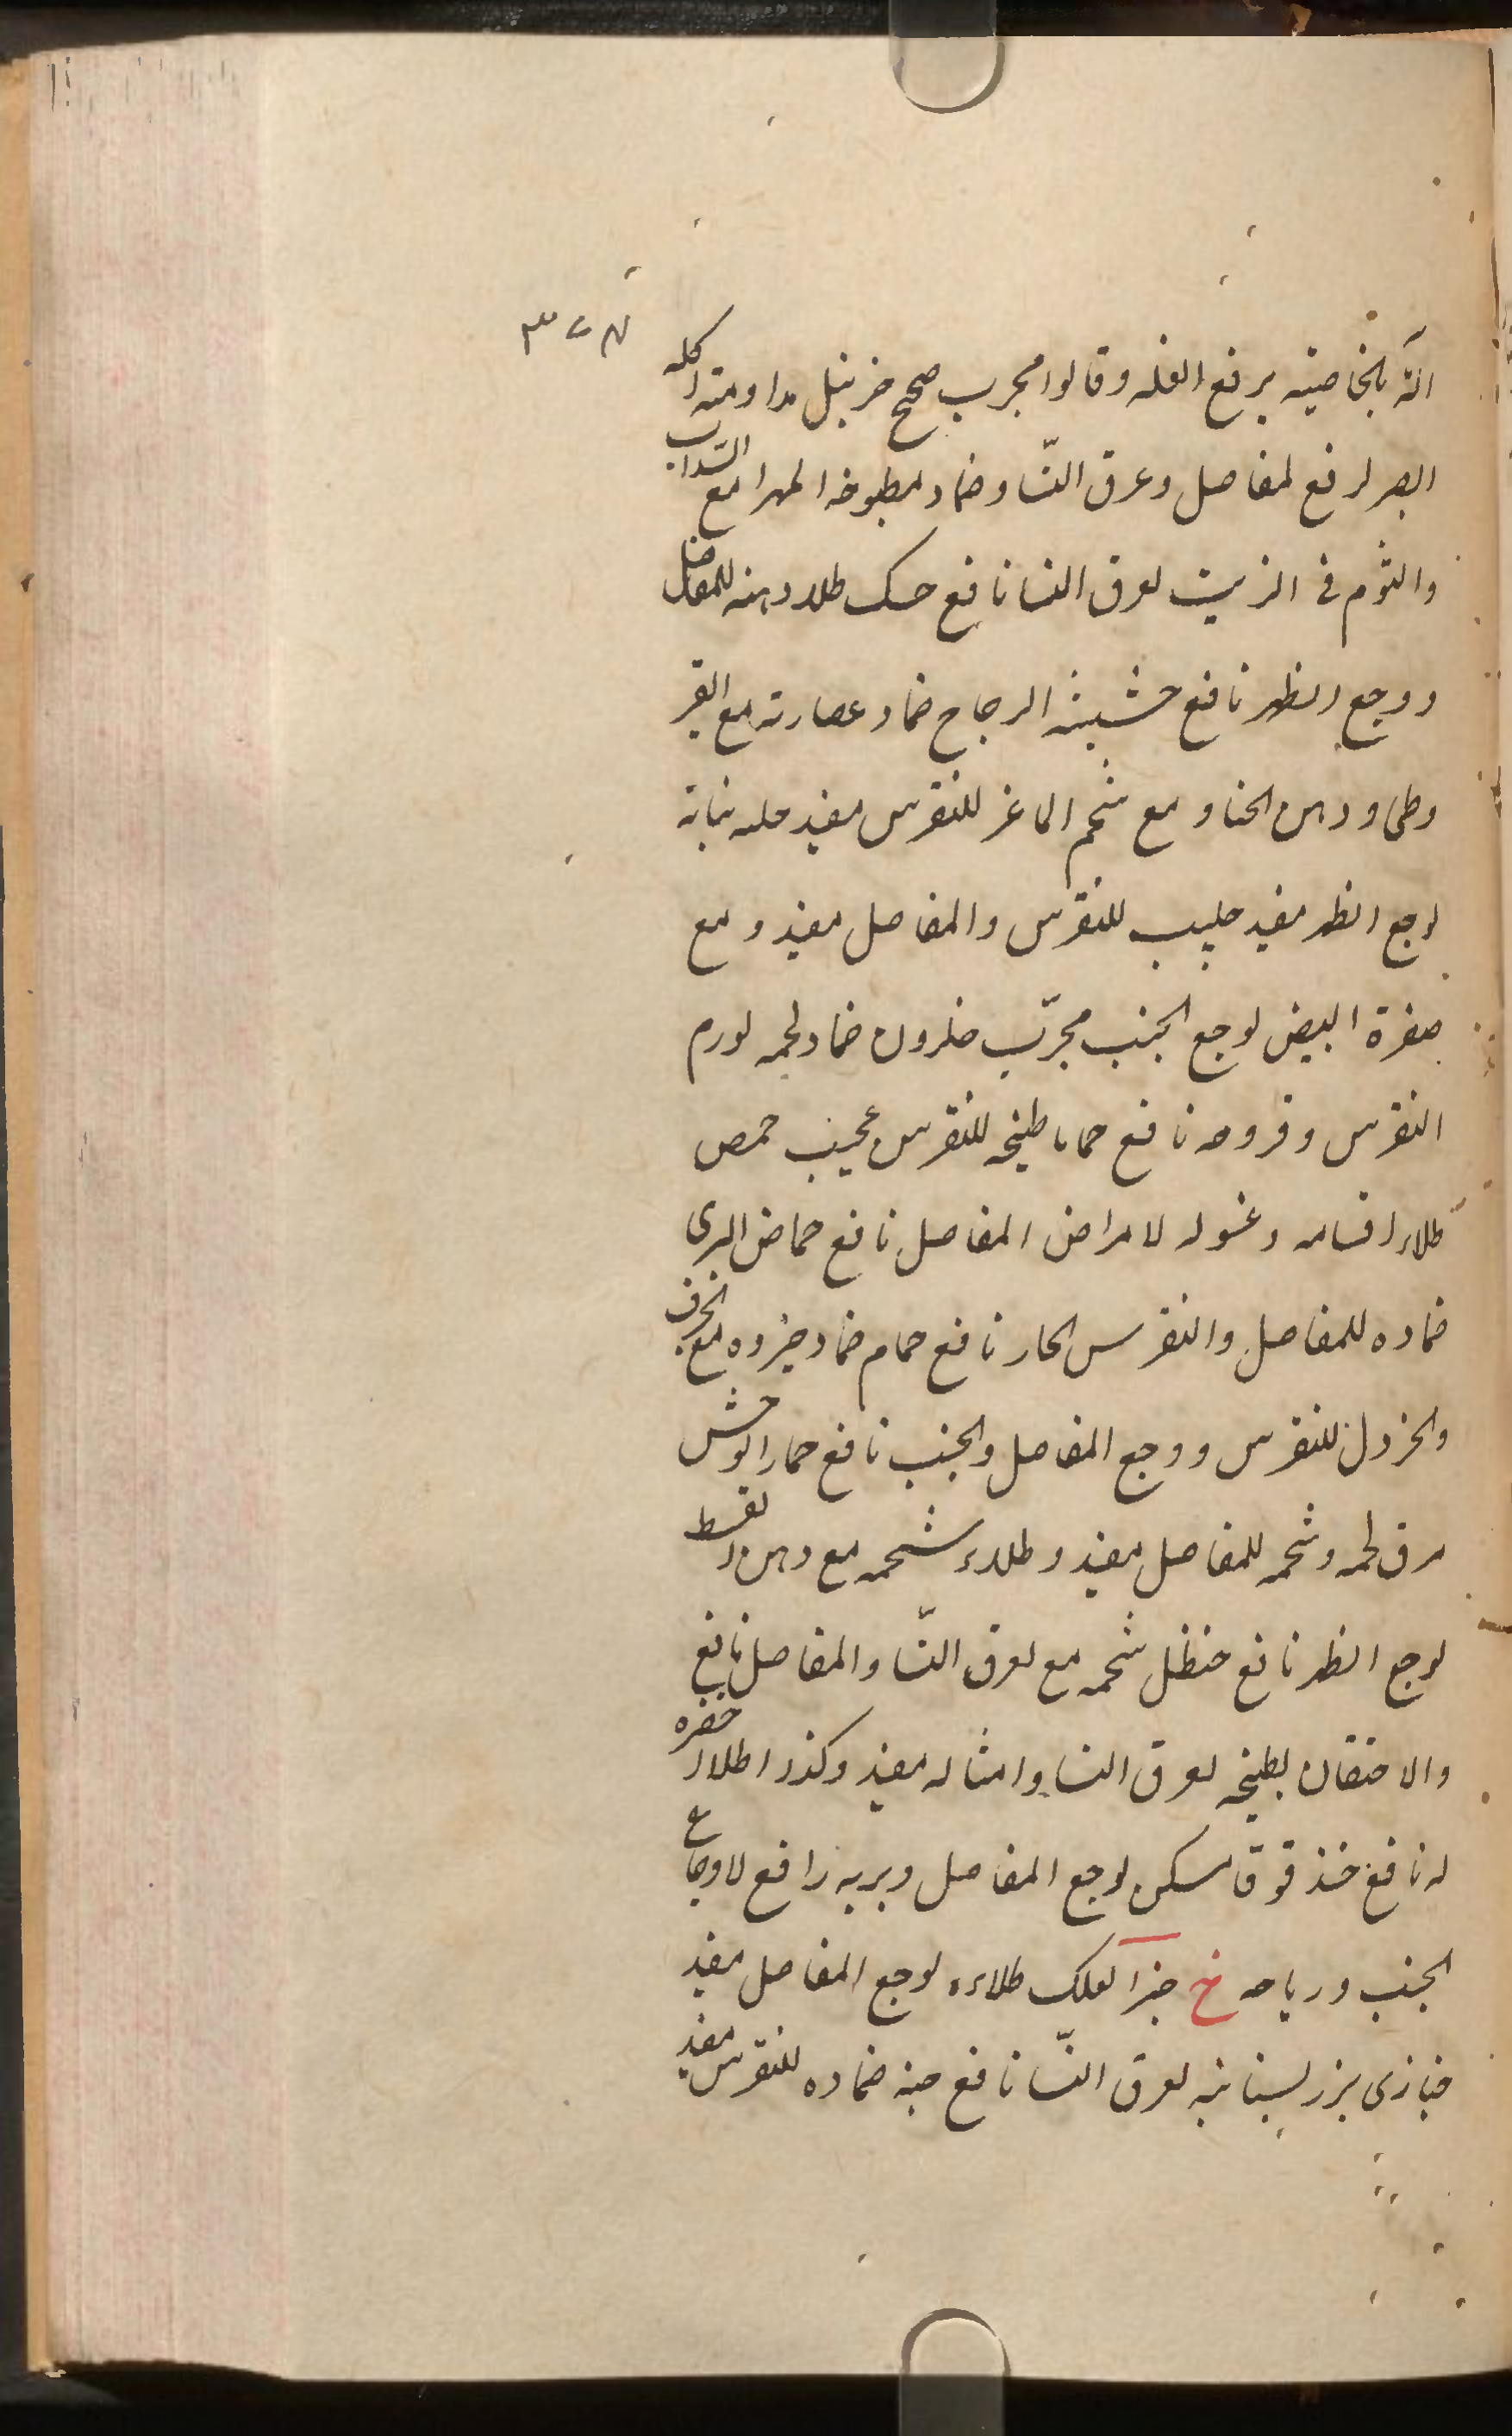 انه بالخاصیه یرفع العله وقالوا مجرب صحیح حزنبل مداومته اکله
البصر لرفع المفاصل وعرق النسا وضماد مطبوخه المهرا مع السداب
والثوم فی الزیت لعرق النسا نافع حسک طلا دهنه للمفاصل
ووجع الظهر نافع حشیشه الزجاج ضماد عصارته مع القیر
وطی ودهن الحنا و مع شحم الماعز للنقرس مفید نباته
لوجع الظهر مفید حلیب للنقرس والمفاصل مفید و مع
صفرة البیض لوجع الجنب مجرّب حلزون ضماد لحمه لورم
النقرس وقروحه نافع حماما طبیخه للنقرس عجیب حمص
طلاء اقسامه وغسوله لامراض المفاصل نافع حماض البری
ضماده للمفاصل والنقرس الحار نافع حمام ضماد خروه مع الحرف
والخردل للنقرس ووجع المفاصل والجنب نافع حمار الوحش
مرق لحمه وشحمه للمفاصل مفید وطلاء شحمه مع دهن القسط
لوجع الظهر نافع حنظل شحمه مع لعرق النسا والمفاصل نافع
والاحتقان بطبیخه لعرق النسا وامثاله مفید وکذا طلا
له نافع حندقوقا مسکن لوجع المفاصل وبریه رافع لاوجاع
الجنب وریاحه خ طلاءه لوجع المفاصل مفید
خبازی بزر بستانیه لعرق النسا نافع ضماده للنقرس مفید